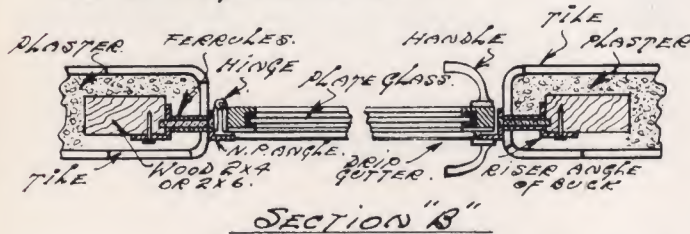 PLASTER.
FERRULES.
HINGE
PLATE GLASS.
HANDLE
TILE
PLASTER
TILE
WOOD 2X4
OR 2X6.
N.P. ANGLE.
DRIP
GUTTER.
RISER ANGLE
OF BUCK
SECTION "B"